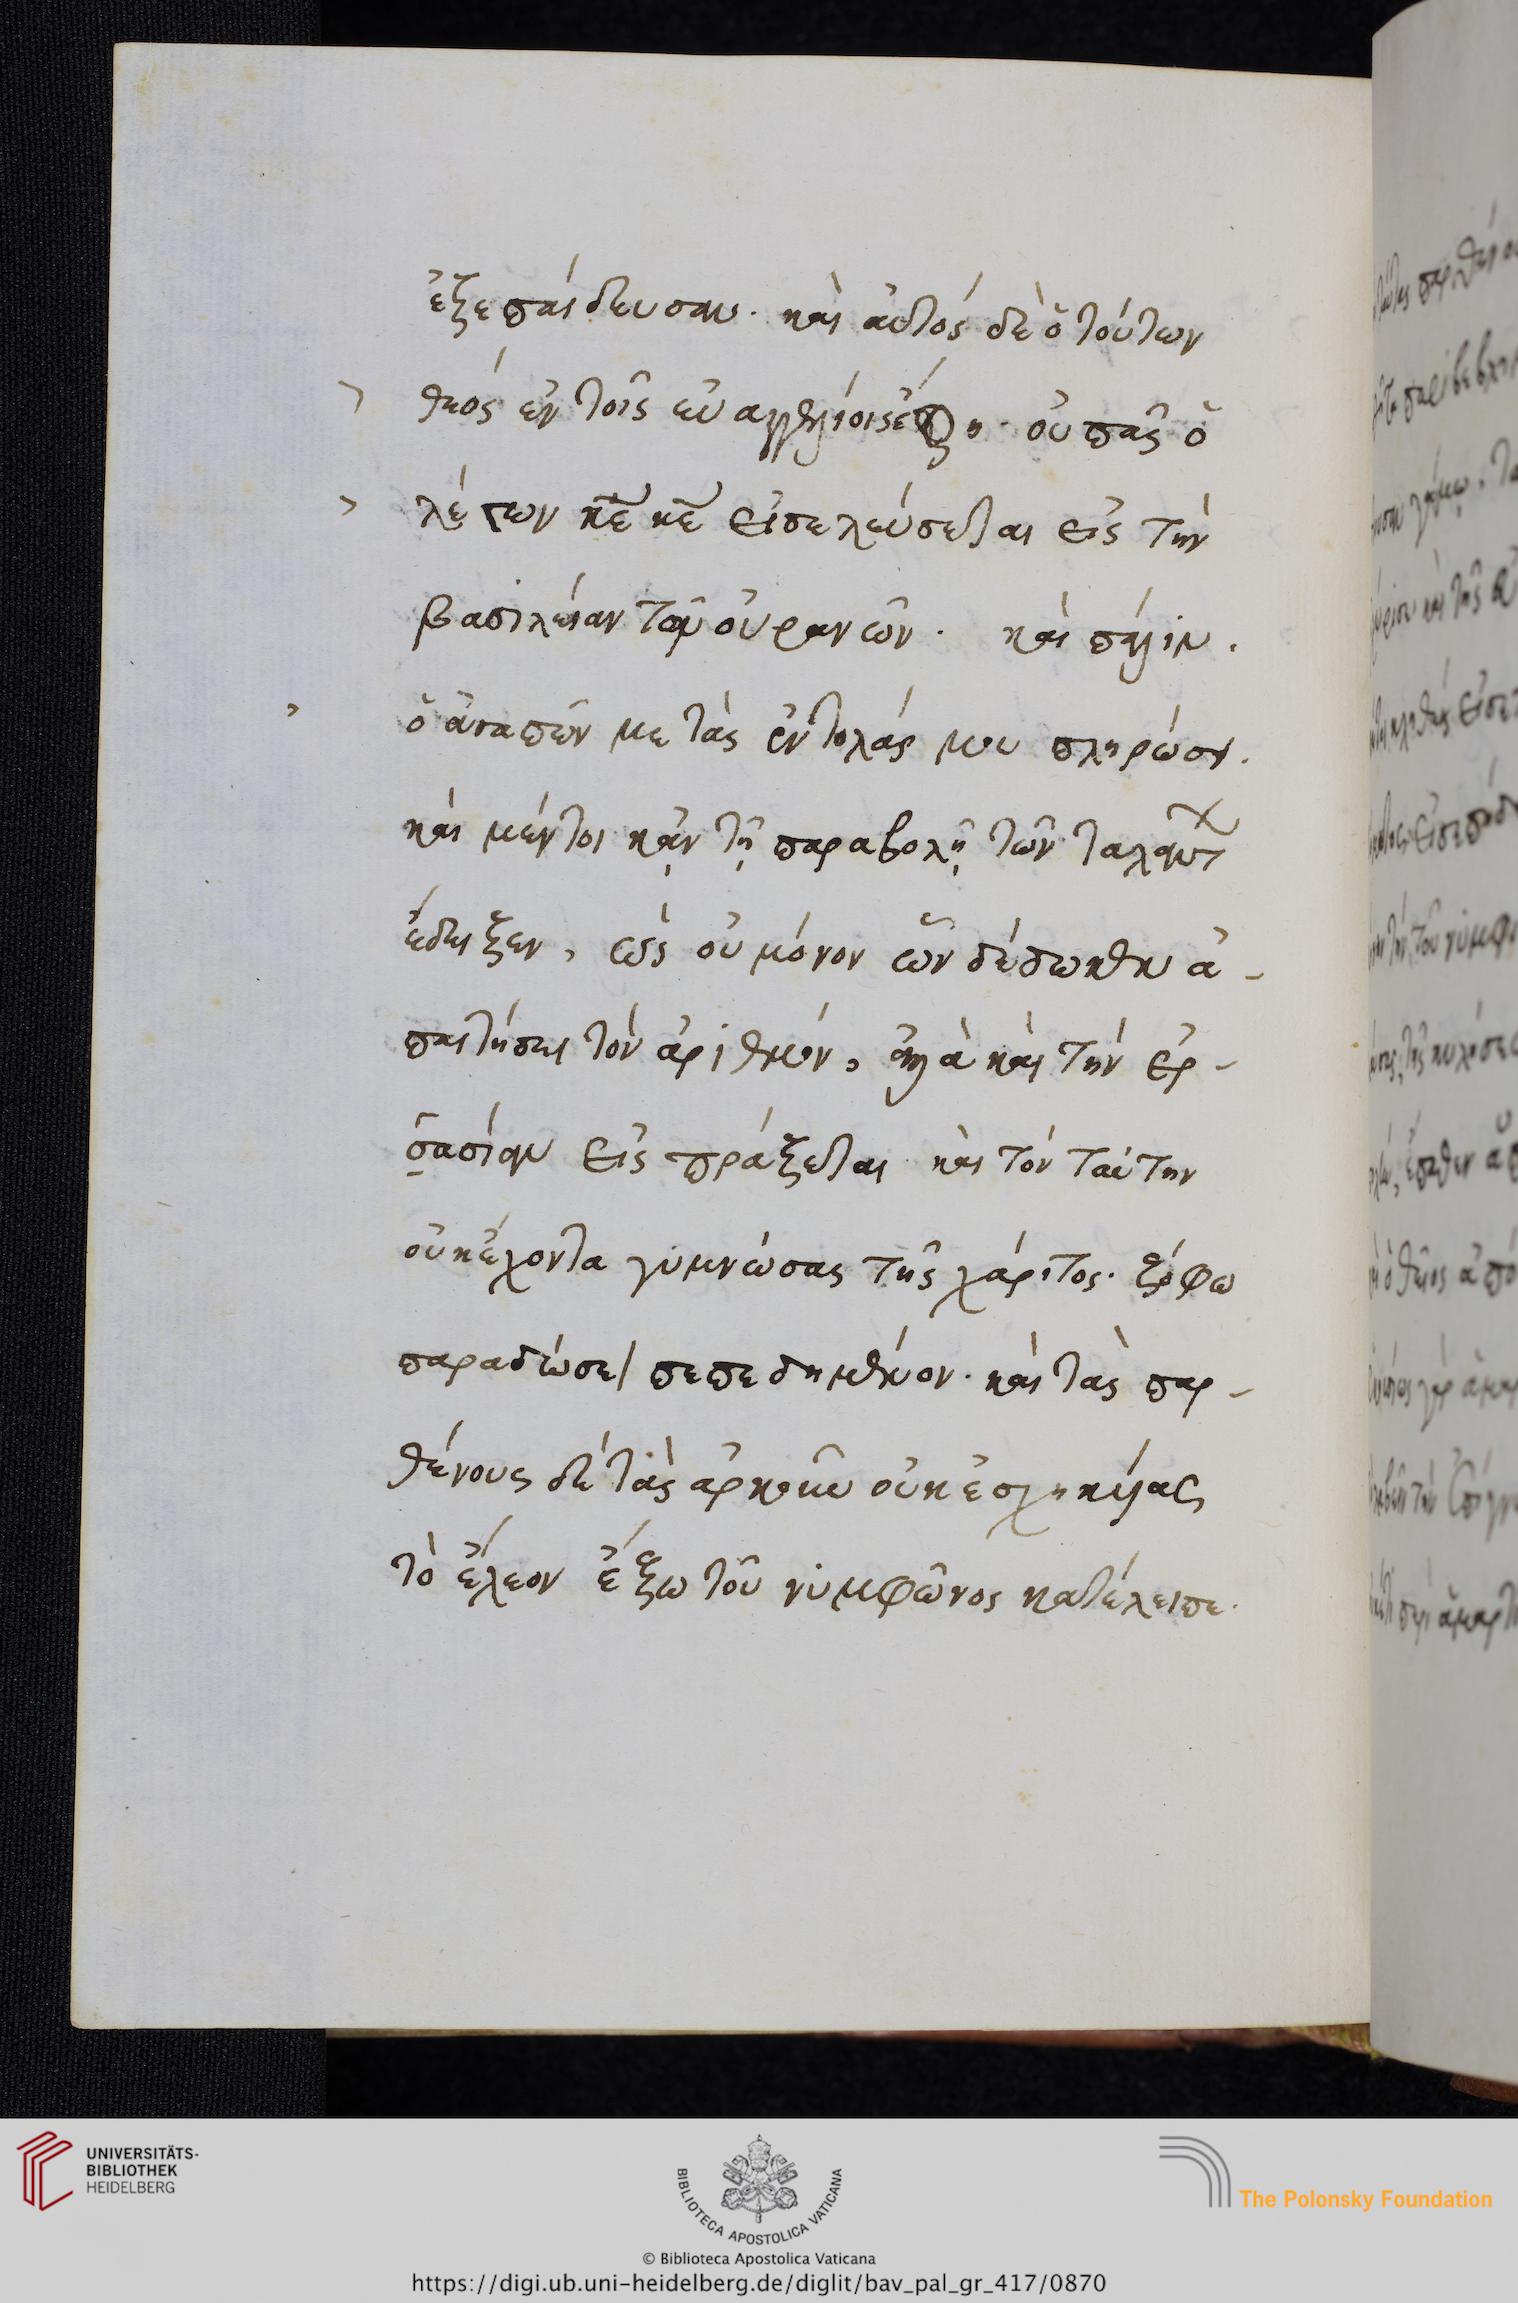 ἐξεπαίδευσαν. καὶ αὐτὸς δὲ ὁ τούτων
θεὸς ἐν τοῖς εὐαγγελίοις ἔφη. οὐ πᾶς ὁ
λέγων κε κε εἰσελεύσεται εἰς τὴν
βασιλείαν τῶν οὐρανῶν. καὶ πάλιν.
ὁ ἀγαπῶν με τὰς ἐντολάς μου πληρώσει.
καὶ μέντοι κἀν τῇ παραβολῇ τῶν ταλάντων
ἔδειξεν, ὡς οὐ μόνον ὧν δέδωκεν ἀ-
παιτήσει τὸν ἀριθμόν, ἀλλὰ καὶ τὴν ἐρ-
γασίαν εἰσπράξεται καὶ τὸν ταύτην
οὐκ ἔχοντα γυμνώσας τῆς χάριτος. ζόφω
παραδώσει πεπεδημένον. καὶ τὰς παρ-
θένους δὲ τὰς ἀρκοῦν οὐκ ἐσχηκυίας
τὸ ἔλεον ἔξω τοῦ νυμφῶνος κατέλειπε.
UNIVERSITÄTS-
BIBLIOTHEK
HEIDELBERG
BIBLIOTECA APOSTOLICA VATICANA
The Polonsky Foundation
© Biblioteca Apostolica Vaticana
https://digi.ub.uni-heidelberg.de/diglit/bav_pal_gr_417/0870